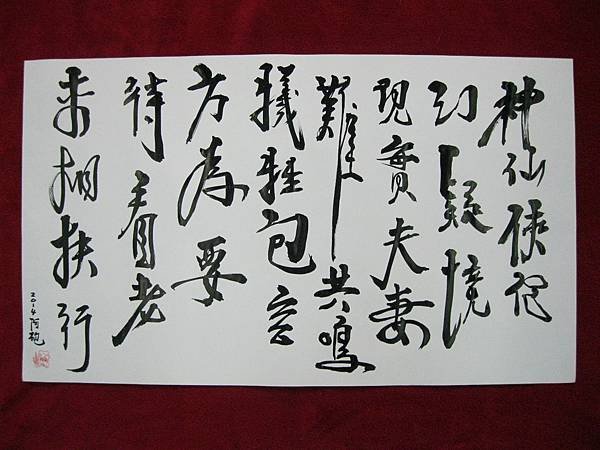 神仙俠侶
幻疑境
現實夫妻
難共鳴
犧牲包容
方為要
待看老
來相扶行
2014 阿